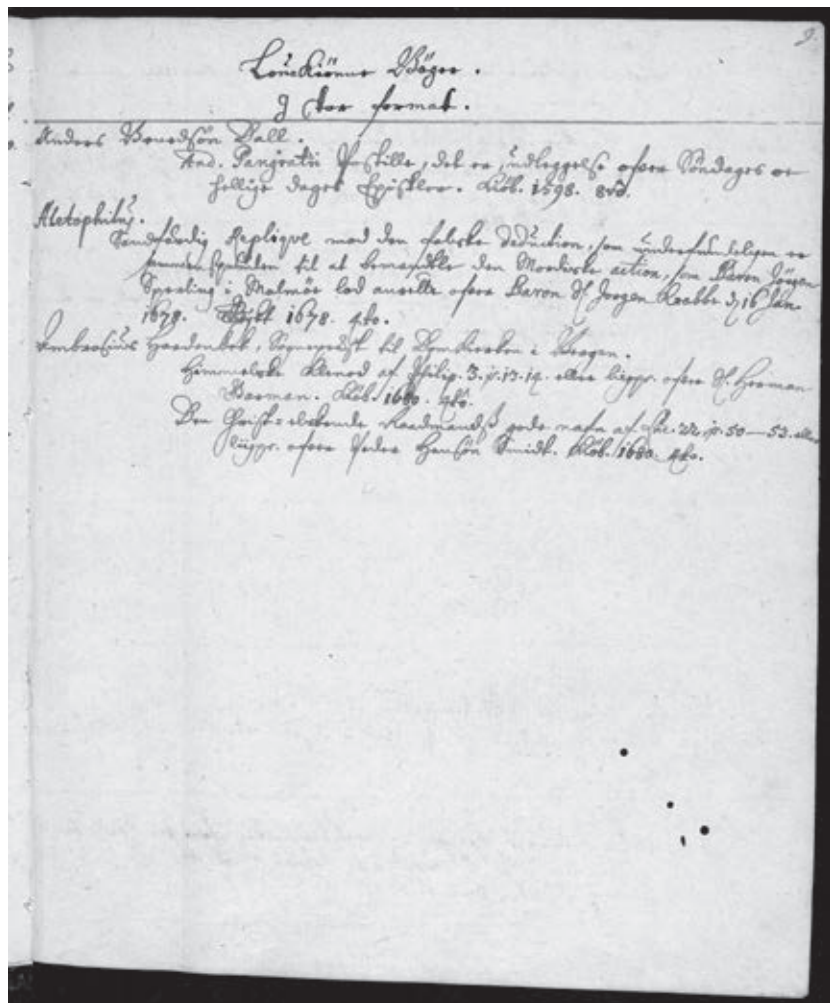 9.
Bøger.
I stor format.
Anders Bendsön Dall.
And. Pangratii Postille, det er, udleggelse ofver Söndages oc
hellige dages Epistler. Kiöb. 1598. 8vo.
Aletophilus.
Sandfärdig Replique mod den falske deduction, som underfundeligen er
til at den Mordiske action, som Baron Jörgen
Sperling i Malmöe lod anstille ofver Baron Hr. Jörgen Krabbe d. 16 Jan.
1678. Tryckt 1678. 4to.
Ambrosius Hardenbek, Sogneprest til Domkircken i Bergen.
Himmelske Klenod af Philip. 3. v. 13. 14. eller ligpr. ofver Sl. Herman
. Kiöb. 1680. 4to.
Den Christ-elskende Raadmands gode nafn af Luc. 22. v. 50-53. eller
ligpr. ofver Peder Hansön Smidt. Kiöb. 1680. 4to.